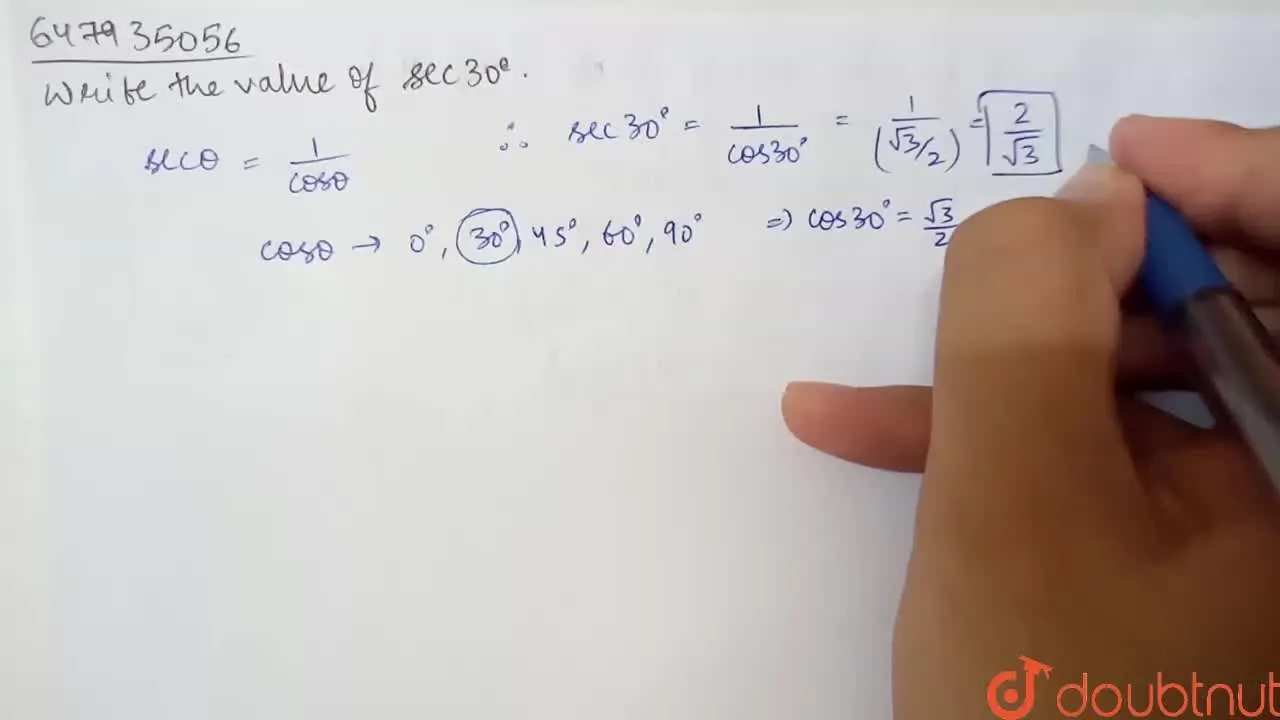 647935056
Write the value of sec30°.
secθ = 1/cosθ
∴ sec30° = 1/cos30° = 1/(√3/2) = 2/√3
cosθ → 0°, 30°, 45°, 60°, 90° ⇒ cos30° = √3/2
doubtnut